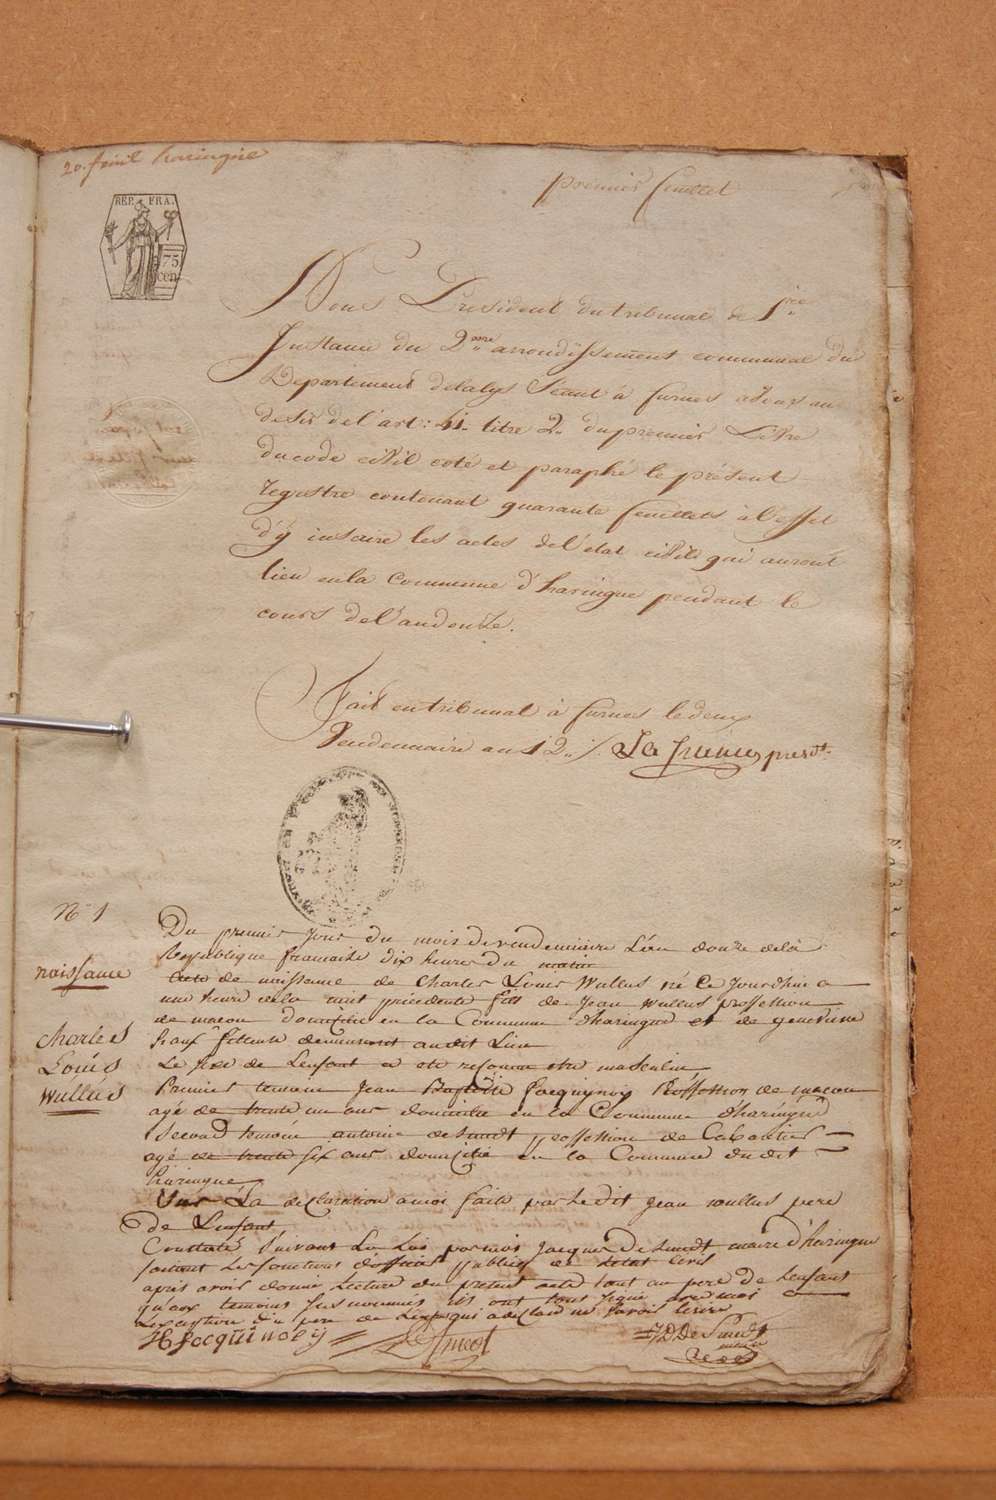 20. feuil haringue
premier feuillet
REP. FRA.
75
cen.
Nous President du tribunal de 1re
Instance du 2.me arrondissement communal du
Departement delalys Séant à furnes avons au
desir del'art: 41. titre 2. dupremier Livre
ducode civil coté et paraphé le présent
registre contenant quarante feuillets àl'effet
d'y inscrire les actes del'etat civil qui auront
lieu enla Commune d'haringue pendant le
cours del'andouze.
Fait entribunal à furnes ledeux
Vendemiaire an 12.
presdt.
N° 1
naissance
Charles
Louis
Wullus
Du premier jour du mois devendemiaire L'an douze dela
Republique francaise dix heures du matin
Acte de naissance de Charles Louis Wullus né Ce Jourdhui a
une heure dela nuit précédente fils de Jean Wullus proffession
de macon domicilié en la Commune dharingue et de genevieve
demeurant audit Lieu
Le sexe de Lenfant a ete reconnu etre masculin
Premier temoin Jean Baptiste Jacquinoy Proffession de macon
agé de trente un ans domicilié en la Commune d'haringue
Second temoin antoine desmidt proffession de Cabartier
agé de trente six ans domicilié en la Commune du dit
haringue
Sur La declaration a moi faite par Ledit jean wullus pere
de Lenfant
Constaté Suivant La Loi par moi Jacques De Smidt maire d'haringue
faisant Les fonctions d'officier public de Letat Civil
apris avoir donné Lecture du present acte tout au pere de Lenfant
qu'aux temoins susnommés ils ont tout signé avec moi a
Lexception du pere de Lenfant qui a declaré ne savoir Ecrire
J B Jacquinoey
J D De Smidt
maire